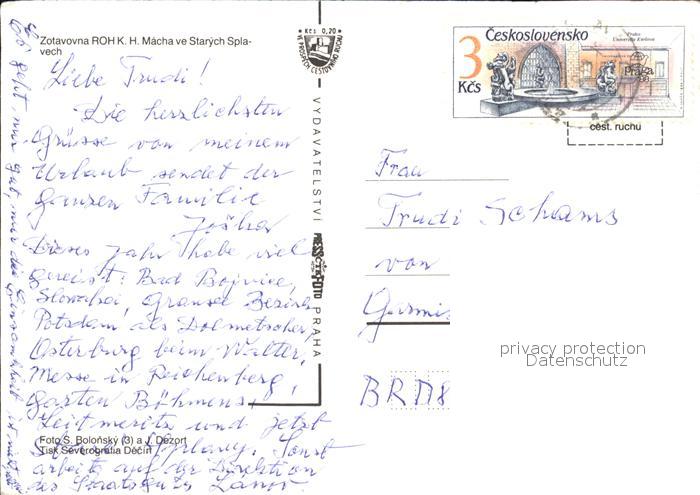 Zotavovna ROH K. H. Mácha ve Starých Spla-
vech
Liebe Trudi!
Die herzlichsten
Grüsse von meinem
Urlaub sendet der
ganzen Familie
Joška
Dieses Jahr habe viel
gereist: Bad Bojnice,
Slowakei, Gransee Bezirk
Potsdam als Dolmetscher,
Osterburg beim Walter,
Messe in Reichenberg,
Garten Böhmens,
Leitmeritz und jetzt
Splavy. Sonst
arbeite auf der Direktion
des Staatsgutes
Foto S. Boloňský (3) a J. Dezort
Tisk Severografia Děčín
Es geht mir gut, nur die Einsamkeit ist
Kčs 0,20
VE PROSPĚCH CESTOVNÍHO RUCHU
VYDAVATELSTVÍ
PRESSFOTO
PRAHA
Československo
3
Kčs
Praha
Universita Karlova
Praha
cest. ruchu
Frau
Trudi Schams
von
Garmis
BRD
privacy protection
Datenschutz